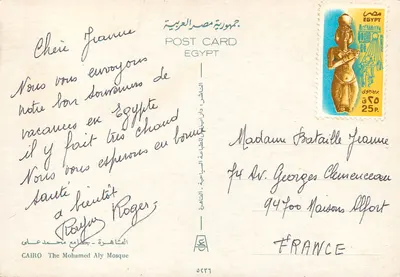 جمهورية مصر العربية
POST CARD
EGYPT
Chère Jeanne
Nous vous envoyons
notre bon souvenirs de
vacances en Egypte
il y fait très chaud
Nous vous esperons en bonne
santé
a bientôt
Roger
القاهرة - جامع محمد على
CAIRO The Mohamed Aly Mosque
مصر
EGYPT
25P.
Madame Bataille Jeanne
74 Av. Georges Clemenceau
94700 Maisons Alfort
FRANCE
٥٢٢٦